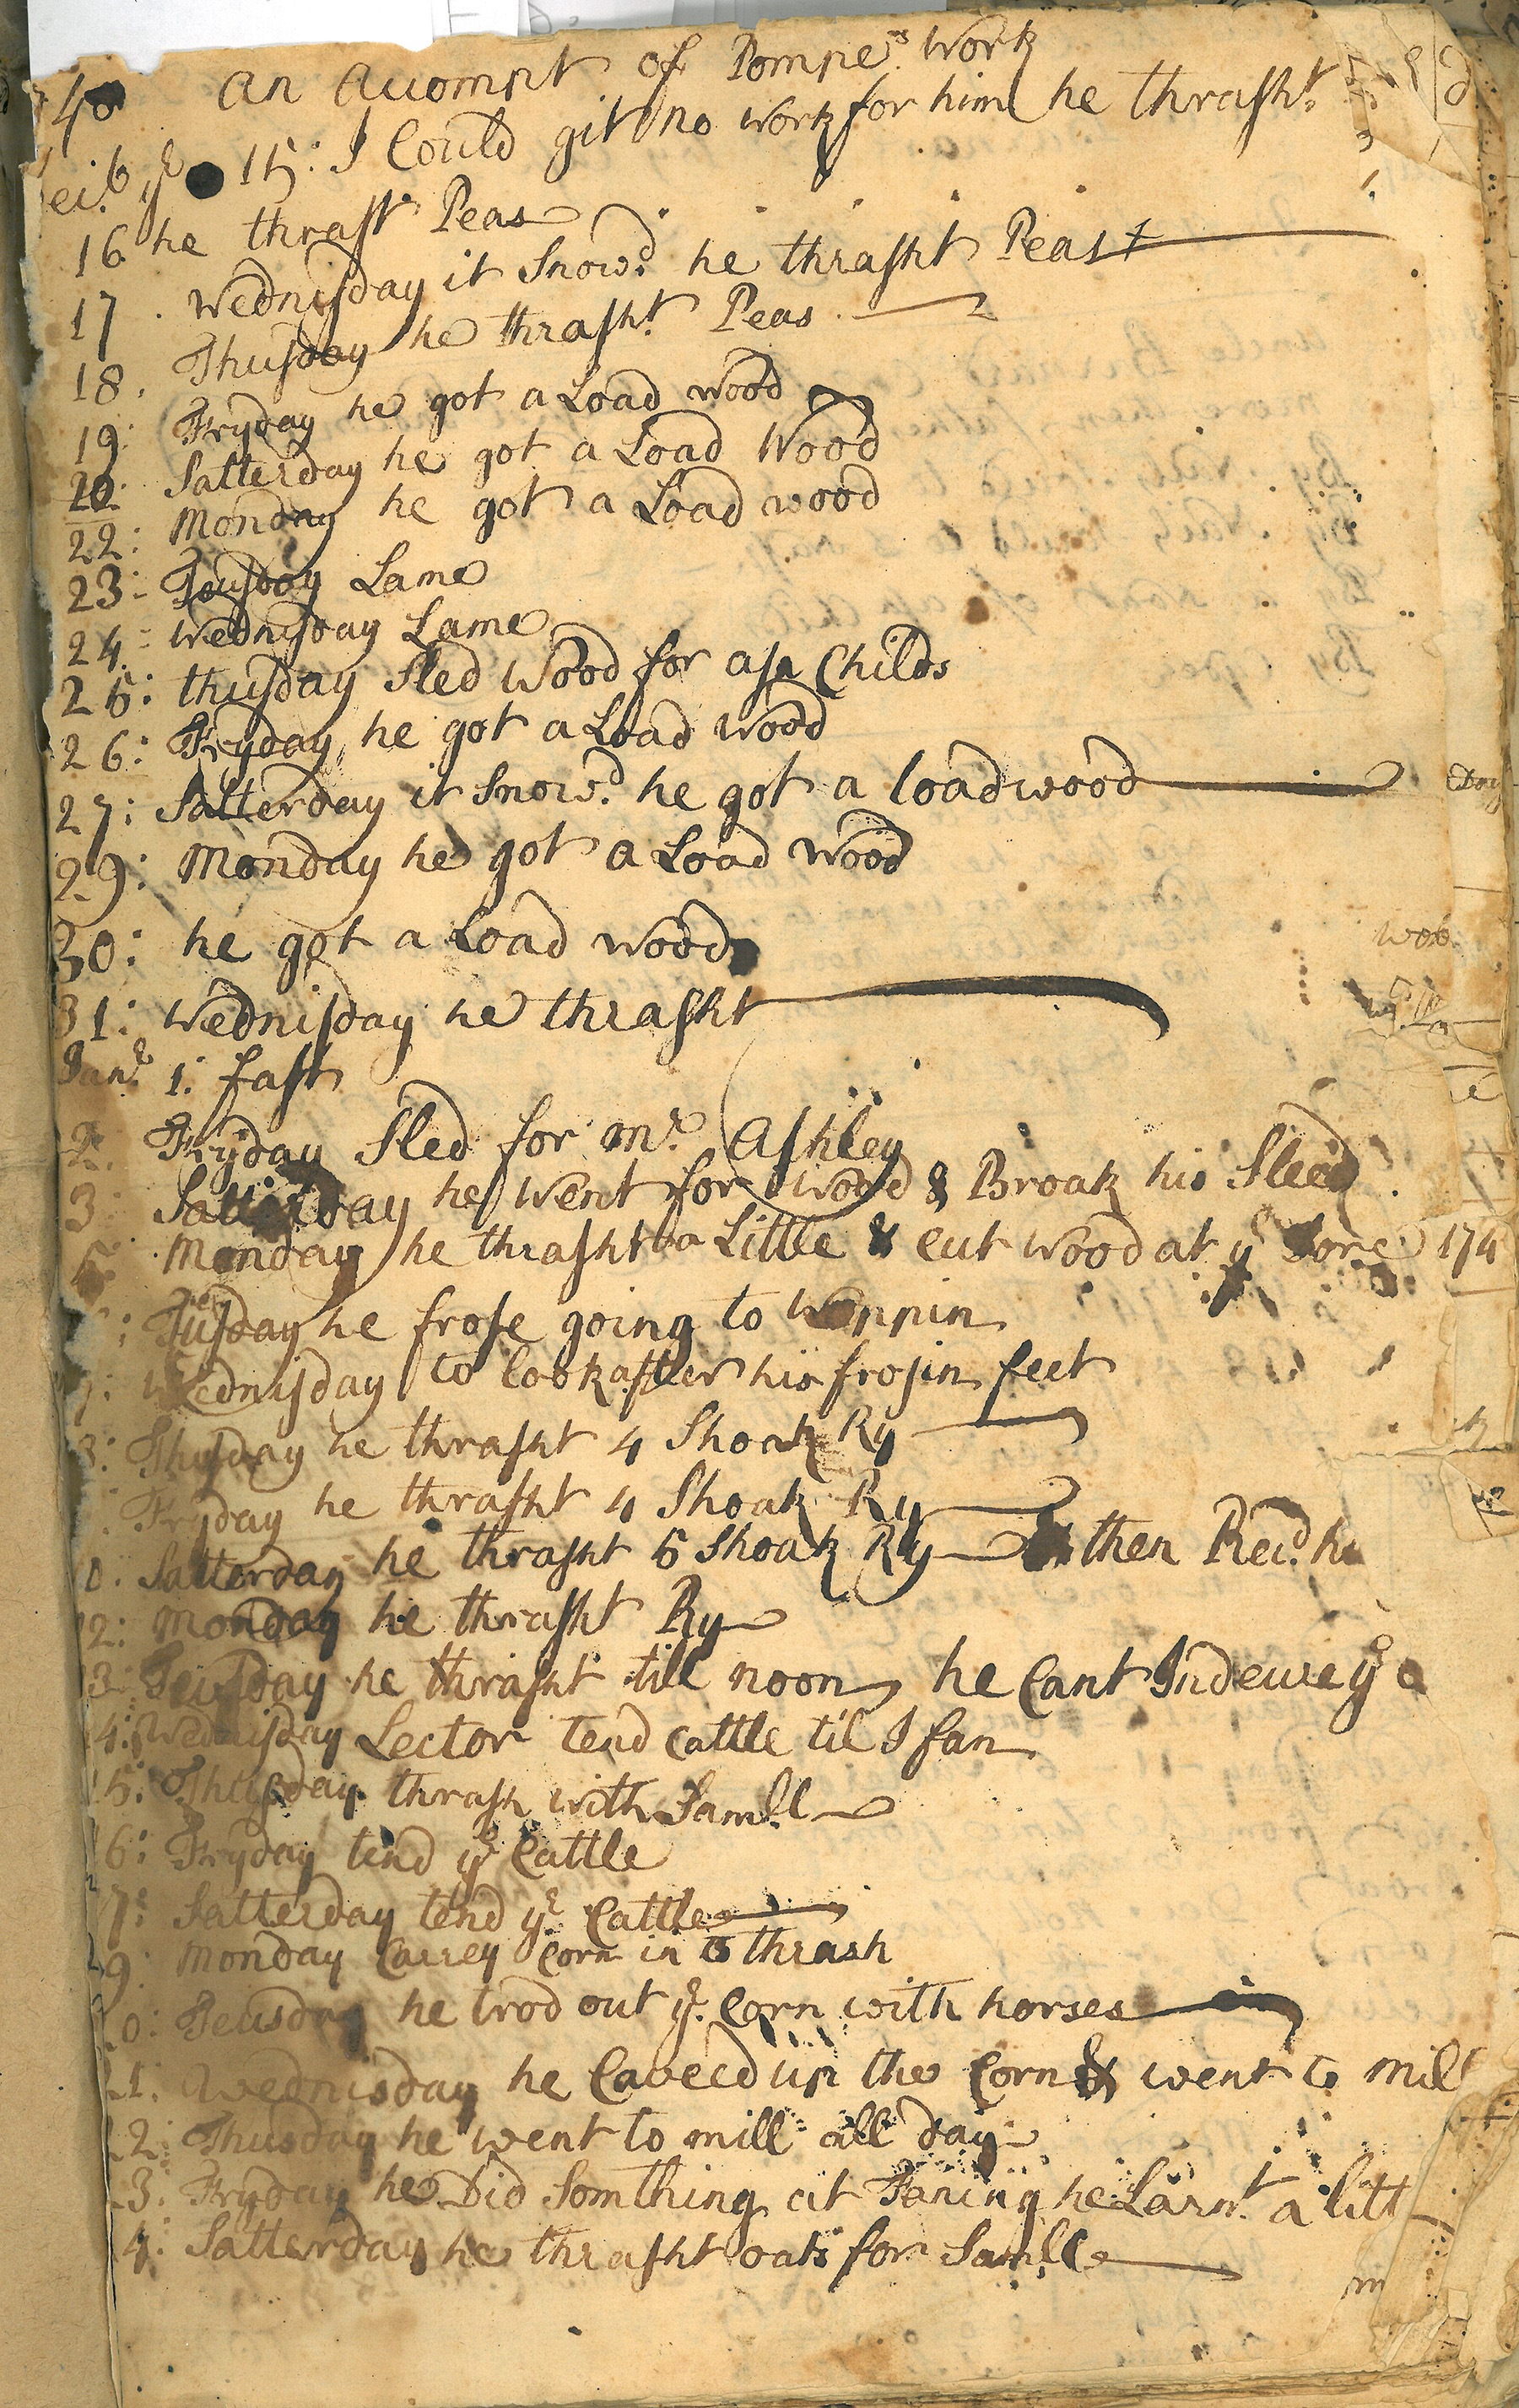 40 an accompt of Pompe.s Work
ye 15: I Could git no work for him he thrasht
16 he thrasht Peas
17 . Wednisday it Snow.d he thrasht Peas
18. Thusday he thrasht Peas
19: Fryday he got a Load wood
20: Satterday he got a Load Wood
22: Monday he got a Load wood
23: Teusday Lame
24: Wednisday Lame
25: thusday Sled Wood for asa Childs
26: Fryday he got a Load Wood
27: Satterday it Snow.d he got a load wood
29: Monday he got a Load Wood
30: he got a Load wood
31: Wednisday he thrasht
Jan.r 1: fast
2. Fryday Sled for mr. Ashley
3 Satterday he Went for Wood & Broak his Sleed
5 Monday he thrasht a Little & Cut Wood at ye 174
: Tusday he frose going to
7: Wednisday to look after his frosin feet
8: Thusday he thrasht 4 Shoak Ry
Fryday he thrasht 4 Shoak Ry
0: Satterday he thrasht 5 Shoak Ry then Rec.d
2: Monday he thrasht Ry
3: Teusday he thrasht till noon he Cant Indewe ye
4: Wednisday Lector tend cattle til I fan
5: Thusday thrash with Sam.ll
6: Fryday tend ye Cattle
7: Satterday tend ye Cattle
9: Monday Carrey Corn in to thrash
0: Teusday he trod out ye Corn with horses
1: Wednisday he Caveed up the Corn & went to mill
2: Thusday he went to mill all day
3: Fryday he Did Somthing at Faning he Larn.t a litt
4: Satterday he thrasht oats for Sam.ll